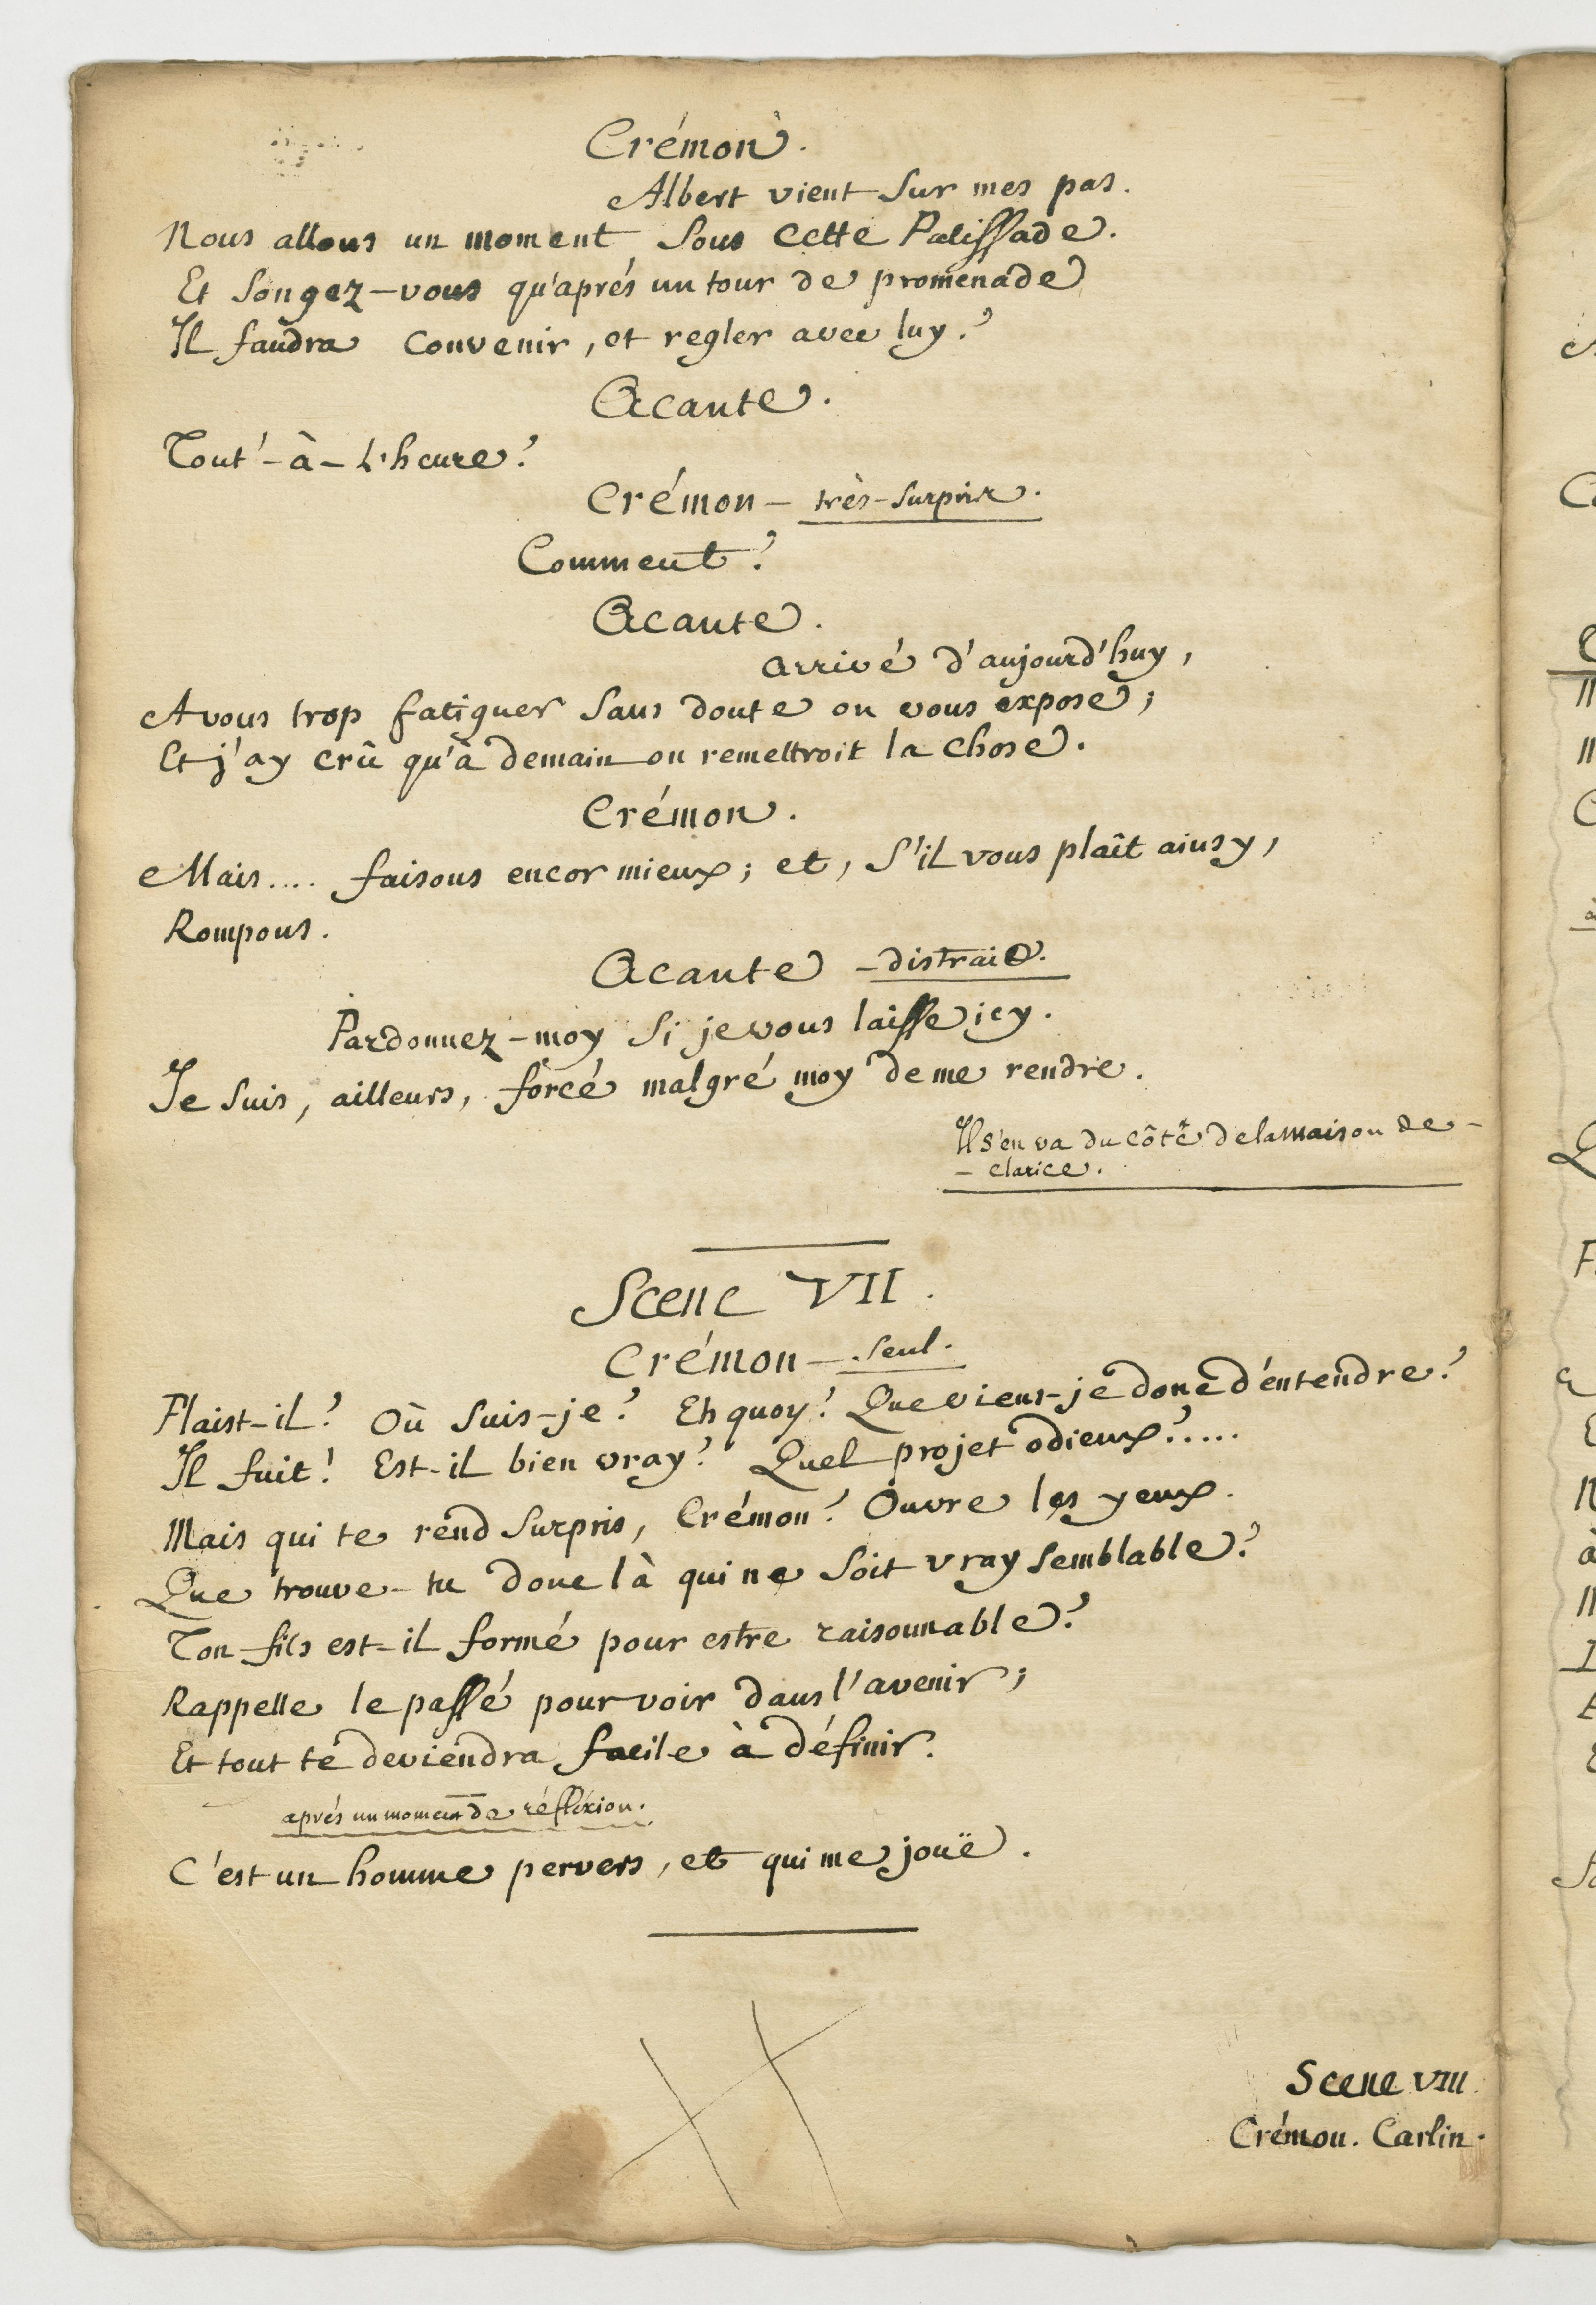 Crémon.
Albert vient sur mes pas.
Nous allons un moment sous cette Palissade.
Et songez-vous qu'aprés un tour de promenade
Il faudra convenir, et regler avec luy?
Acante.
Tout'-à-L'heure?
Crémon - très-surpris.
Comment?
Acante.
arrivé d'aujourd'huy,
A vous trop fatiguer sans doute on vous expose;
Et j'ay crû qu'à demain on remettroit la chose.
Crémon.
Mais.... faisons encor mieux; et, s'il vous plaît ainsy,
Rompons.
Acante - distrait.
Pardonnez-moy si je vous laisse icy.
Je suis, ailleurs, forcé malgré moy de me rendre.
Il s'en va du côté de la maison de -
- clarice.
Scene VII.
Crémon - seul.
Plaist-il? Où suis-je? Eh quoy! Que viens-je donc d'entendre?
Il fuit! Est-il bien vray? Quel projet odieux?.....
Mais qui te rend surpris, Crémon? Ouvre les yeux.
Que trouve-tu donc là qui ne soit vray semblable?
Ton fils est-il formé pour estre raisonnable?
Rappelle le passé pour voir dans l'avenir;
Et tout te deviendra facile à définir.
aprés un moment de réfléxion.
C'est un homme pervers, et qui me jouë.
Scene VIII.
Crémon. Carlin.